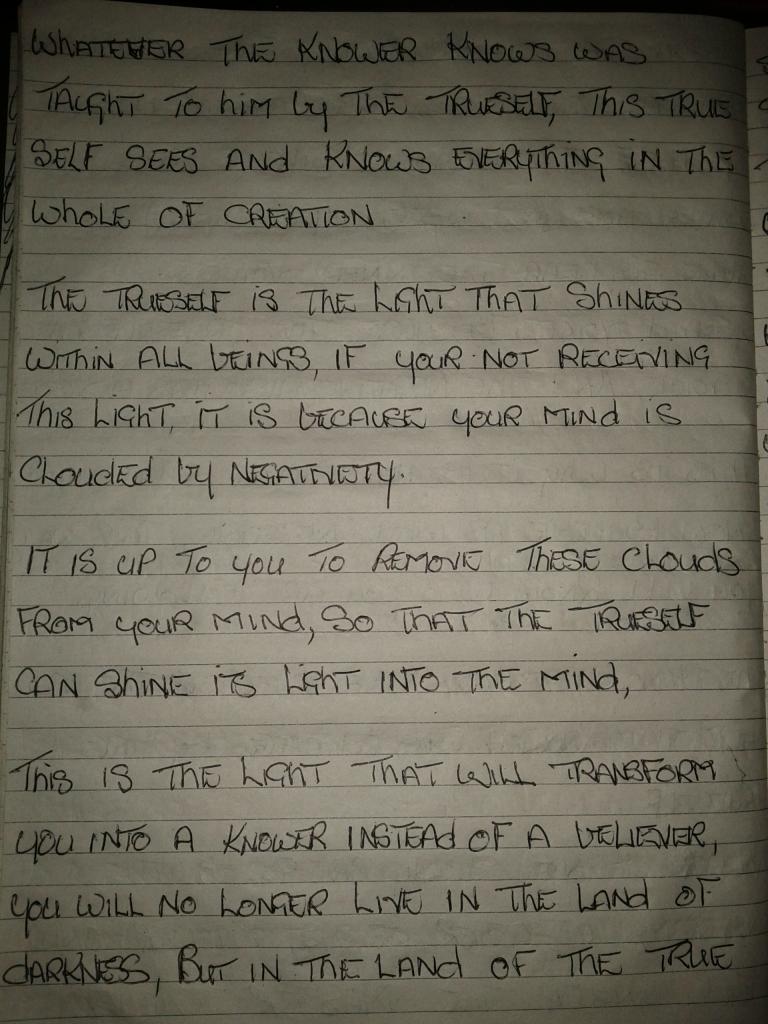 WHATEVER THE KNOWER KNOWS WAS
TAUGHT TO him by THE TRUESELF, This TRUE
SELF SEES ANd KNOWS EVERYTHING IN THE
WhOLE OF CREATION
THE TRUESELF is THE LIGHT THAT ShINES
WIThIN ALL bEINGS, IF YOUR NOT RECEIVING
This LIGHT, IT IS bECAUSE YOUR MIND iS
ClOUdED by NEGATIVITY.
IT IS UP TO YOU TO REMOVE THESE ClOUdS
FROM YOUR MIND, SO THAT THE TRUESELF
CAN ShINE ITS LIGHT INTO THE MINd,
This IS THE LIGHT THAT WILL TRANSFORM
YOU INTO A KNOWER INSTEAd OF A bELIEVER,
YOU WILL NO LONGER LIVE IN THE LANd OF
dARKNESS, BUT IN THE LANd OF THE TRUE